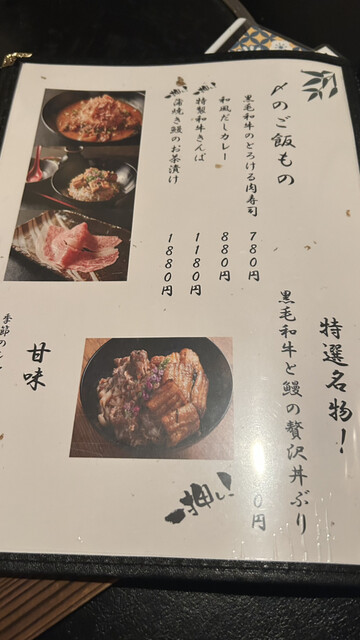 〆のご飯もの
黒毛和牛のとろける肉寿司 780円
和風だしカレー 880円
押し!
特製和牛きんぱ 1180円
押し!
蒲焼き鰻のお茶漬け 1880円
特選名物!
黒毛和牛と鰻の贅沢丼ぶり
0円
押し!
甘味
季節の